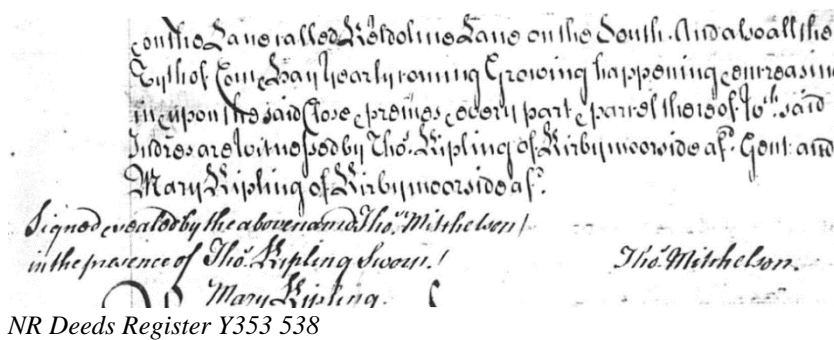 & on the Lane called Keldoline Lane on the South. And also all the
Tyth of Corn & Hay Yearly coming Growing happening & encreasing
in & upon the said Close & premes & every part & parcel thereof. Wch. said
Indres are Witnessed by Thos. Kipling of Kirbymoorside afs. Gent: and
Mary Kipling of Kirbymoorside afs.
Signed & sealed by the abovenamd Thos. Mitchelson
in the presence of Thos. Kipling Sworn.
Thos. Mitchelson.
Mary Kipling.
NR Deeds Register Y353 538